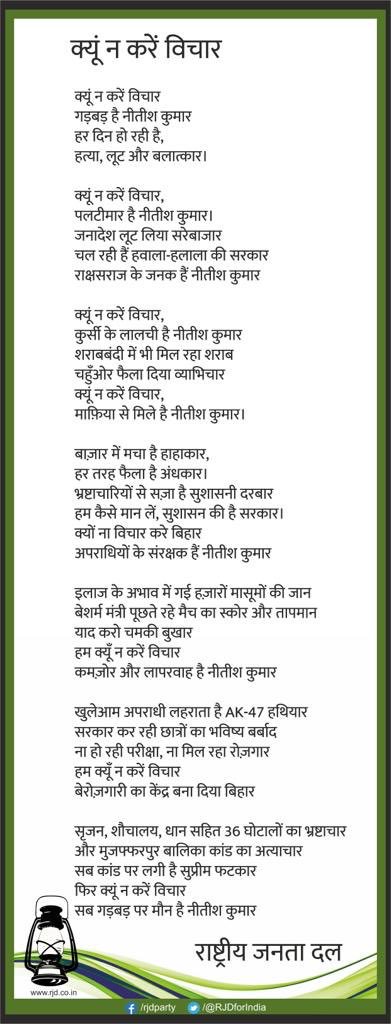 क्यूं न करें विचार
क्यूं न करें विचार
गड़बड़ है नीतीश कुमार
हर दिन हो रही है,
हत्या, लूट और बलात्कार।
क्यूं न करें विचार,
पलटीमार है नीतीश कुमार।
जनादेश लूट लिया सरेबाजार
चल रही हैं हवाला-हलाला की सरकार
राक्षसराज के जनक हैं नीतीश कुमार
क्यूं न करें विचार,
कुर्सी के लालची है नीतीश कुमार
शराबबंदी में भी मिल रहा शराब
चहुँओर फैला दिया व्याभिचार
क्यूं न करें विचार,
माफ़िया से मिले है नीतीश कुमार।
बाज़ार में मचा है हाहाकार,
हर तरह फैला है अंधकार।
भ्रष्टाचारियों से सज़ा है सुशासनी दरबार
हम कैसे मान लें, सुशासन की है सरकार।
क्यों ना विचार करे बिहार
अपराधियों के संरक्षक हैं नीतीश कुमार
इलाज के अभाव में गई हज़ारों मासूमों की जान
बेशर्म मंत्री पूछते रहे मैच का स्कोर और तापमान
याद करो चमकी बुखार
हम क्यूँ न करें विचार
कमज़ोर और लापरवाह है नीतीश कुमार
खुलेआम अपराधी लहराता है AK-47 हथियार
सरकार कर रही छात्रों का भविष्य बर्बाद
ना हो रही परीक्षा, ना मिल रहा रोज़गार
हम क्यूँ न करें विचार
बेरोज़गारी का केंद्र बना दिया बिहार
सृजन, शौचालय, धान सहित 36 घोटालों का भ्रष्टाचार
और मुजफ्फरपुर बालिका कांड का अत्याचार
सब कांड पर लगी है सुप्रीम फटकार
फिर क्यूं न करें विचार
सब गड़बड़ पर मौन है नीतीश कुमार
राष्ट्रीय जनता दल
www.rjd.co.in
/rjdparty /@RJDforIndia